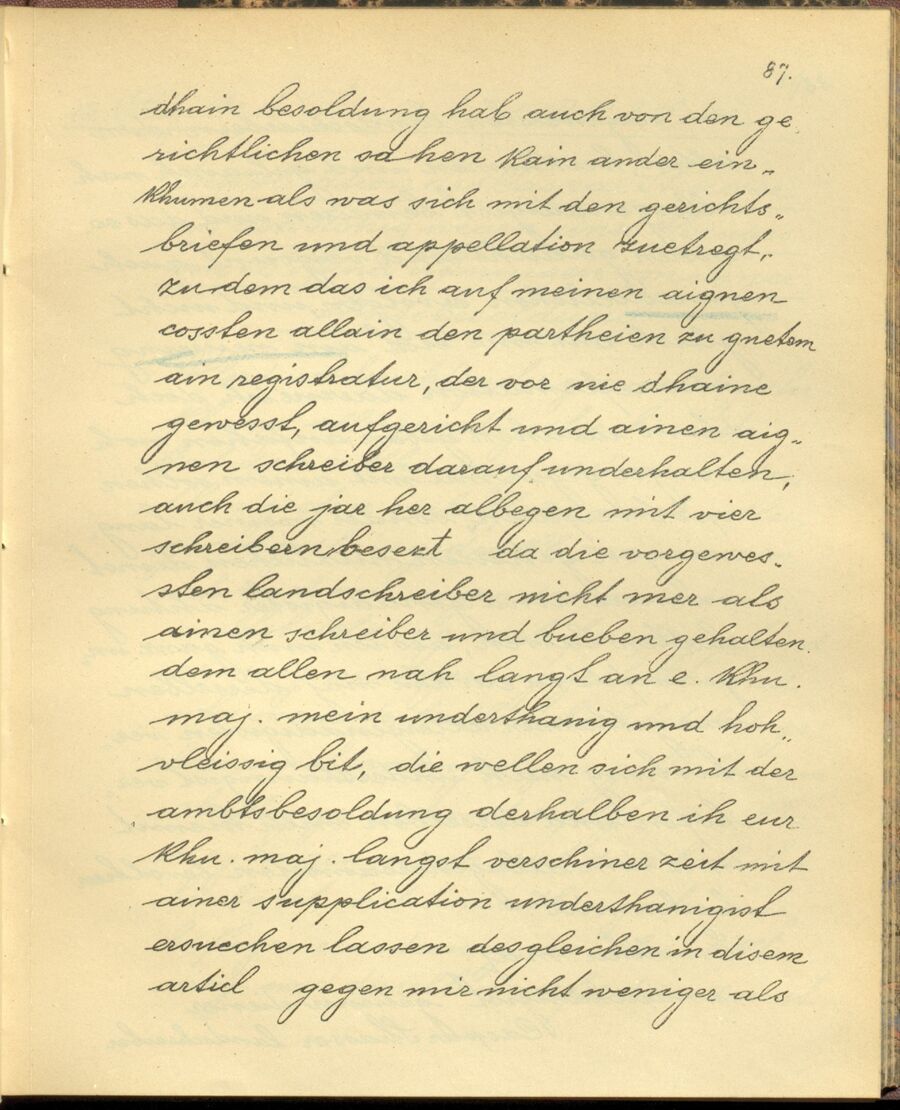 87.
dhain besoldung hab auch von den ge
richtlichen sahen kain ander ein„
khumen als was sich mit den gerichts„
briefen und appellation zuetregt,
zu dem das ich auf meinen aignen
cossten allain den partheien zu guetem
ain registratur, der vor nie dhaine
gewesst, aufgericht und ainen aig„
nen schreiber darauf underhalten,
auch die jar her albegen mit vier
schreibern besezt da die vorgewes„
sten landschreiber nicht mer als
ainen schreiber und bueben gehalten.
dem allen nah langt an e. khu.
maj. mein underthanig und hoh„
vleissig bit, die wellen sich mit der
ambtsbesoldung derhalben ih eur
khu. maj. langst verschiner zeit mit
ainer supplication underthanigist
ersuechen lassen desgleichen in disem
articl gegen mir nicht weniger als